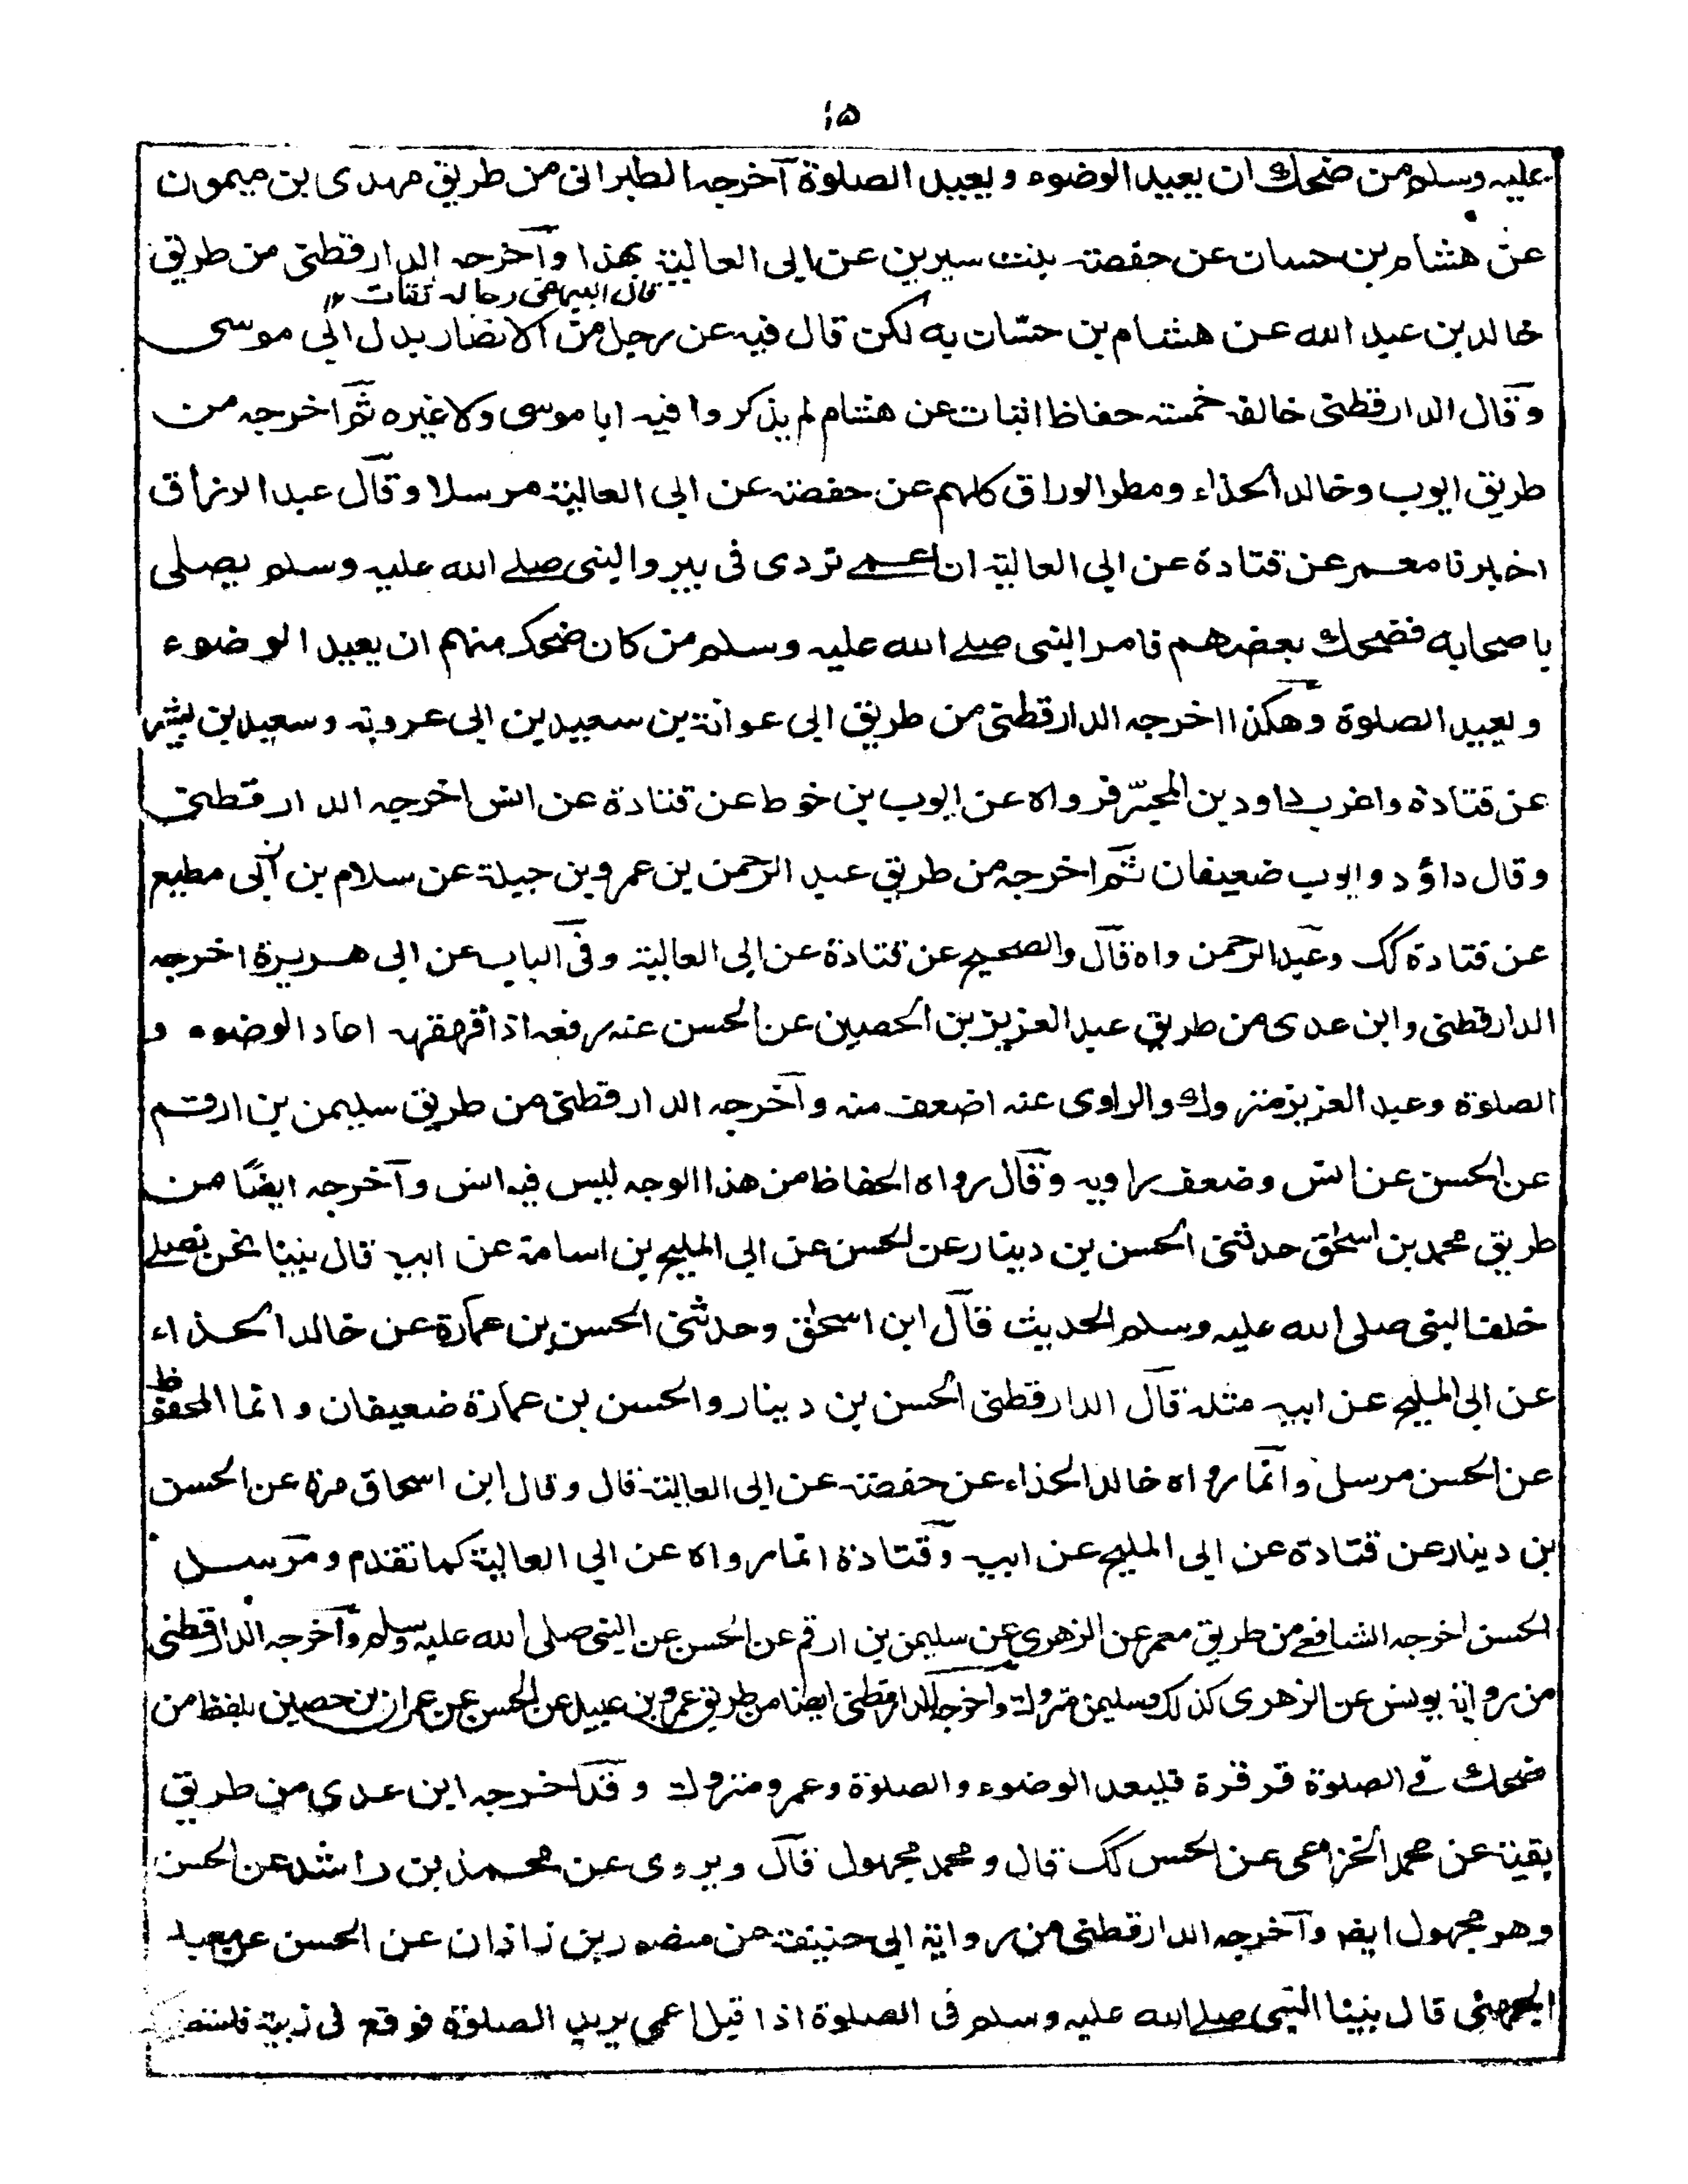 ١٥
عليه وسلم من ضحك ان يعيد الوضوء ويعيد الصلوة آخرجه الطبرانى من طريق مهدى بن ميمون
عن هشام بن حسان عن حفصة بنت سيرين عن ابى العالية بهذا وآخرجه الدارقطنى من طريق
قال البيهقى رجاله ثقات ١٢
خالد بن عبد الله عن هشام بن حسّان به لكن قال فيه عن رجل من الانصار بدل ابى موسى
وقال الدارقطنى خالفه خمسة حفاظ اثبات عن هشام لم يذكروا فيه ابا موسى ولا غيره ثم اخرجه من
طريق ايوب وخالد الحذاء ومطر الوراق كلهم عن حفصة عن ابى العالية مرسلا وقال عبد الرزاق
اخبرنا معمر عن قتادة عن ابى العالية ان اعمے تردى فى بير والنبى صلے الله عليه وسلم يصلى
باصحابه فضحك بعضهم فامر النبى صلے الله عليه وسلم من كان ضحك منهم ان يعيد الوضوء
ويعيد الصلوة وهكذا اخرجه الدارقطنى من طريق ابى عوانة بن سعيد بن ابى عروبة وسعيد بن بشير
عن قتادة واغرب داود بن المحبّر فرواه عن ايوب بن خوط عن قتادة عن انس اخرجه الدارقطنى
وقال داؤد وايوب ضعيفان ثم اخرجه من طريق عبد الرحمن بن عمرو بن جبلة عن سلام بن ابى مطيع
عن قتادة كك وعبد الرحمن واه قال والصحيح عن قتادة عن ابى العالية وفى الباب عن ابى هريرة اخرجه
الدارقطنى وابن عدى من طريق عبد العزيز بن الحصين عن الحسن عنه رفعه اذا قهقهه اعاد الوضوء و
الصلوة وعبد العزيز متروك والراوى عنه اضعف منه وآخرجه الدارقطنى من طريق سليمن بن ارقم
عن الحسن عن انس وضعف راويه وقال رواه الحفاظ من هذا الوجه ليس فيه انس وآخرجه ايضًا من
طريق محمد بن اسحٰق حدثنى الحسن بن دينار عن الحسن عن ابى المليح بن اسامة عن ابيه قال بينا نحن نصلے
خلف النبى صلى الله عليه وسلم الحديث قال ابن اسحٰق وحدثنى الحسن بن عمارة عن خالد الحذاء
عن ابى المليح عن ابيه مثله قال الدارقطنى الحسن بن دينار والحسن بن عمارة ضعيفان وانما المحفوظ
عن الحسن مرسل وانما رواه خالد الحذاء عن حفصة عن ابى العالية قال وقال ابن اسحاق مرة عن الحسن
بن دينار عن قتادة عن ابى المليح عن ابيه وقتادة انما رواه عن ابى العالية كما تقدم ومرسل
الحسن اخرجه الشافعے من طريق معمر عن الزهرى عن سليمن بن ارقم عن الحسن عن النبى صلى الله عليه وسلم وآخرجه الدارقطنى
من رواية يونس عن الزهرى كذلك وسليمن متروك وآخرجه الدارقطنى ايضا من طريق عمرو بن عبيد عن الحسن عن عمران بن حصين بلفظ من
ضحك فے الصلوة قرقرة فليعد الوضوء والصلوة وعمرو متروك وقد اخرجه ابن عدى من طريق
بقية عن محمد الخزاعى عن الحسن كك قال ومحمد مجهول قال ويروى عن محمد بن راشد عن الحسن
وهو مجهول ايضا وآخرجه الدارقطنى من رواية ابى حنيفة عن منصور بن زاذان عن الحسن عن معبد
الجهنى قال بينا النبى صلے الله عليه وسلم فى الصلوة اذا قبل اعمى يريد الصلوة فوقع فى زبية